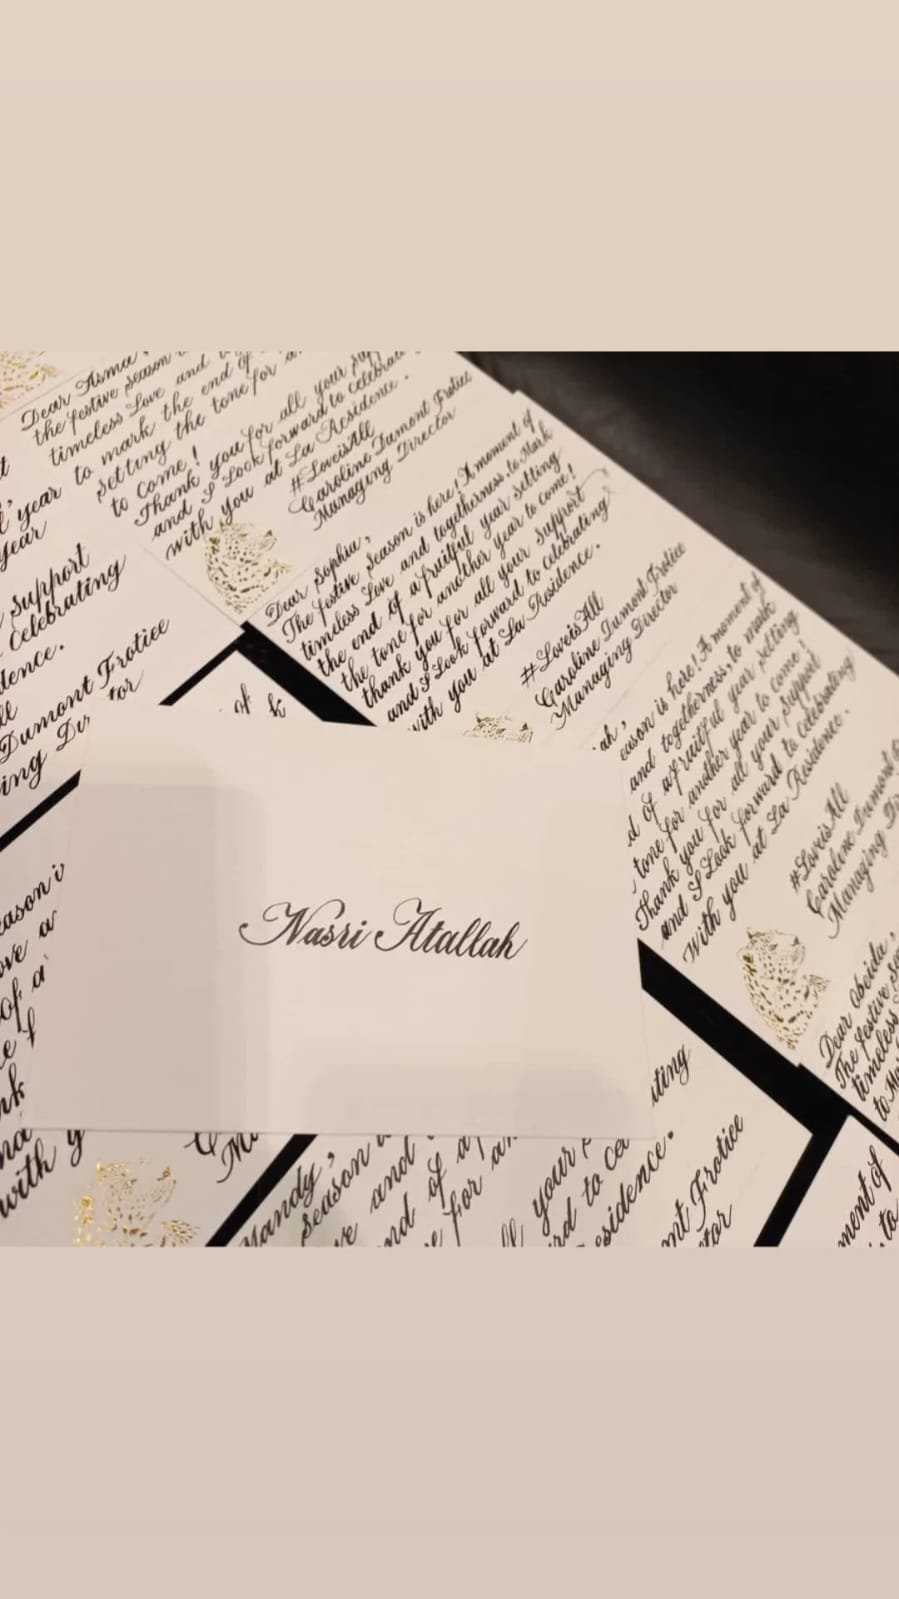 Dear Asma,
the festive season
timeless Love and
year to mark the end of
setting the tone for
to come!
Thank you for all your
and I Look forward to
with you at La Residence.
#LoveisAll
Caroline Dumont Frotiee
Managing Director
year
support
Celebrating
Dumont Frotiee
Dear Sophia,
The festive Season is here! A moment of
timeless Love and togetherness, to Mark
the end of a fruitful year setting
the tone for another year to come!
thank you for all your Support
and I Look forward to celebrating
with you at La Residence.
#LoveisAll
Caroline Dumont Frotiee
Managing Director
is here! A moment of
and togetherness, to mark
of a fruitful year setting
tone for another year to come!
Thank you for all your Support
and I Look forward to Celebrating
With you at La Residence.
#LoveisAll
Caroline Dumont
Managing
Nasri Atallah
Dear Obeida,
The festive
timeless
to
of
with
season
and
of
for
your
to
Frotiee
of
to